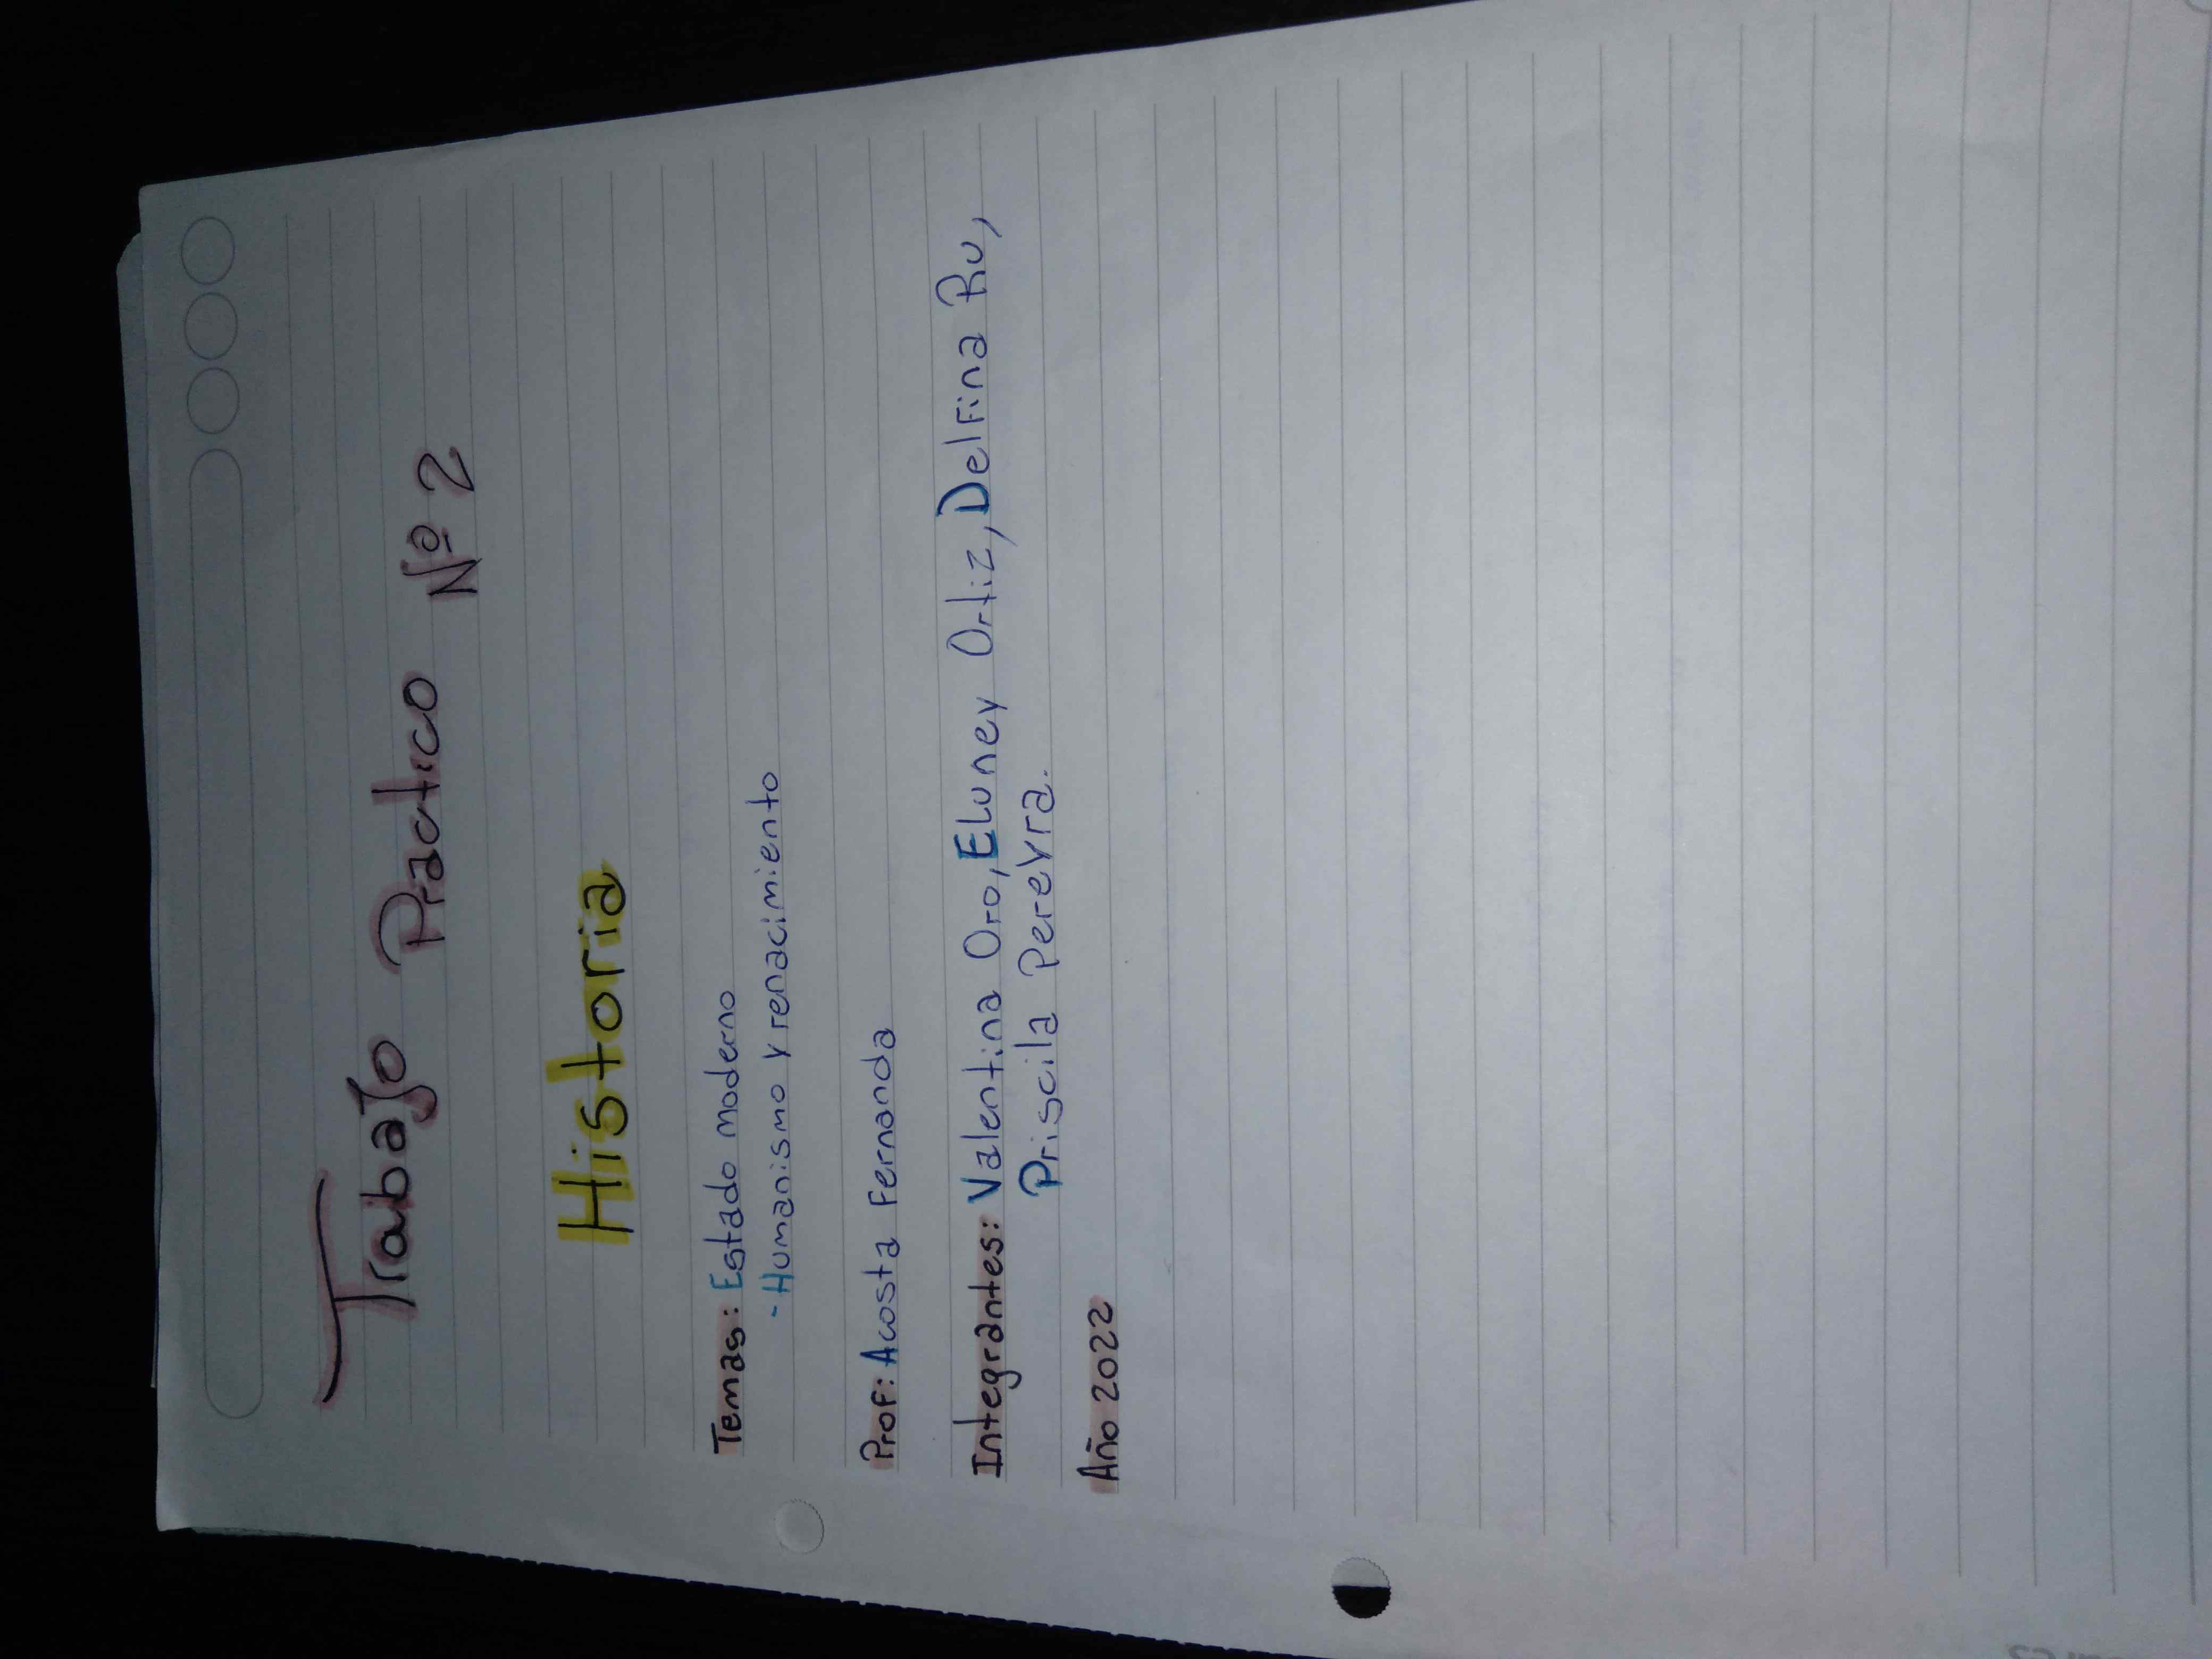 Trabajo Practico Nº 2
Historia
Temas: Estado moderno
- Humanismo y renacimiento
Prof: Acosta Fernanda
Integrantes: Valentina Oro, Eluney Ortiz, Delfina Ru,
Priscila Pereyra.
Año 2022